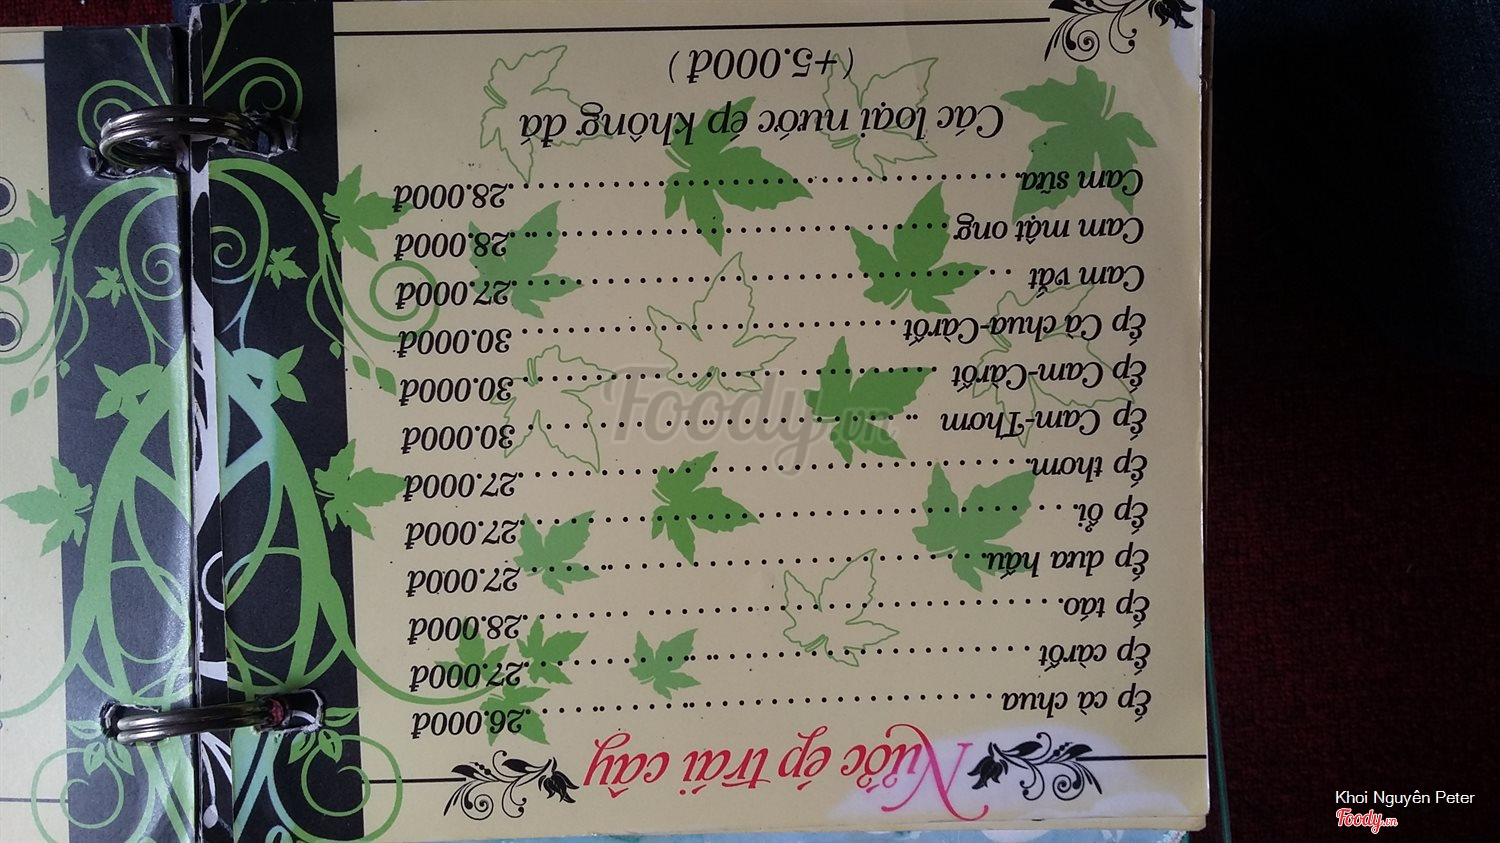 Nước ép trái cây
Ép cà chua 26.000đ
Ép càrốt 27.000đ
Ép táo 28.000đ
Ép dưa hấu 27.000đ
Ép ổi 27.000đ
Ép thơm 27.000đ
Ép Cam-Thơm 30.000đ
Ép Cam-Càrốt 30.000đ
Ép Cà chua-Càrốt 30.000đ
Cam vắt 27.000đ
Cam mật ong 28.000đ
Cam sữa 28.000đ
Các loại nước ép không đá
(+5.000đ)
Foody.vn
Khoi Nguyên Peter
Foody.vn